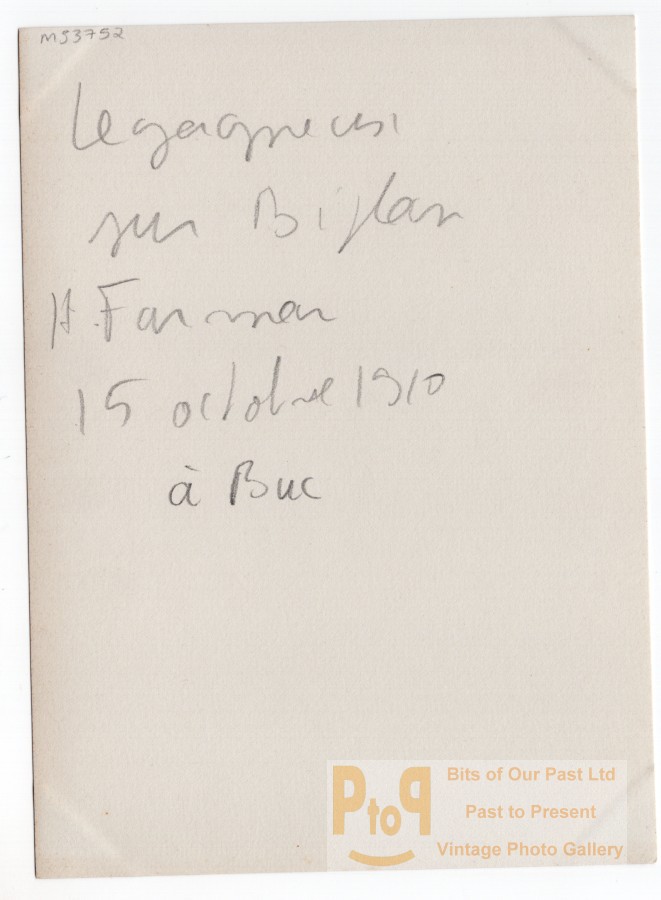 M53752
Legagneux
sur Biplan
H. Farman
15 octobre 1910
à Buc
PtoP
Bits of Our Past Ltd
Past to Present
Vintage Photo Gallery